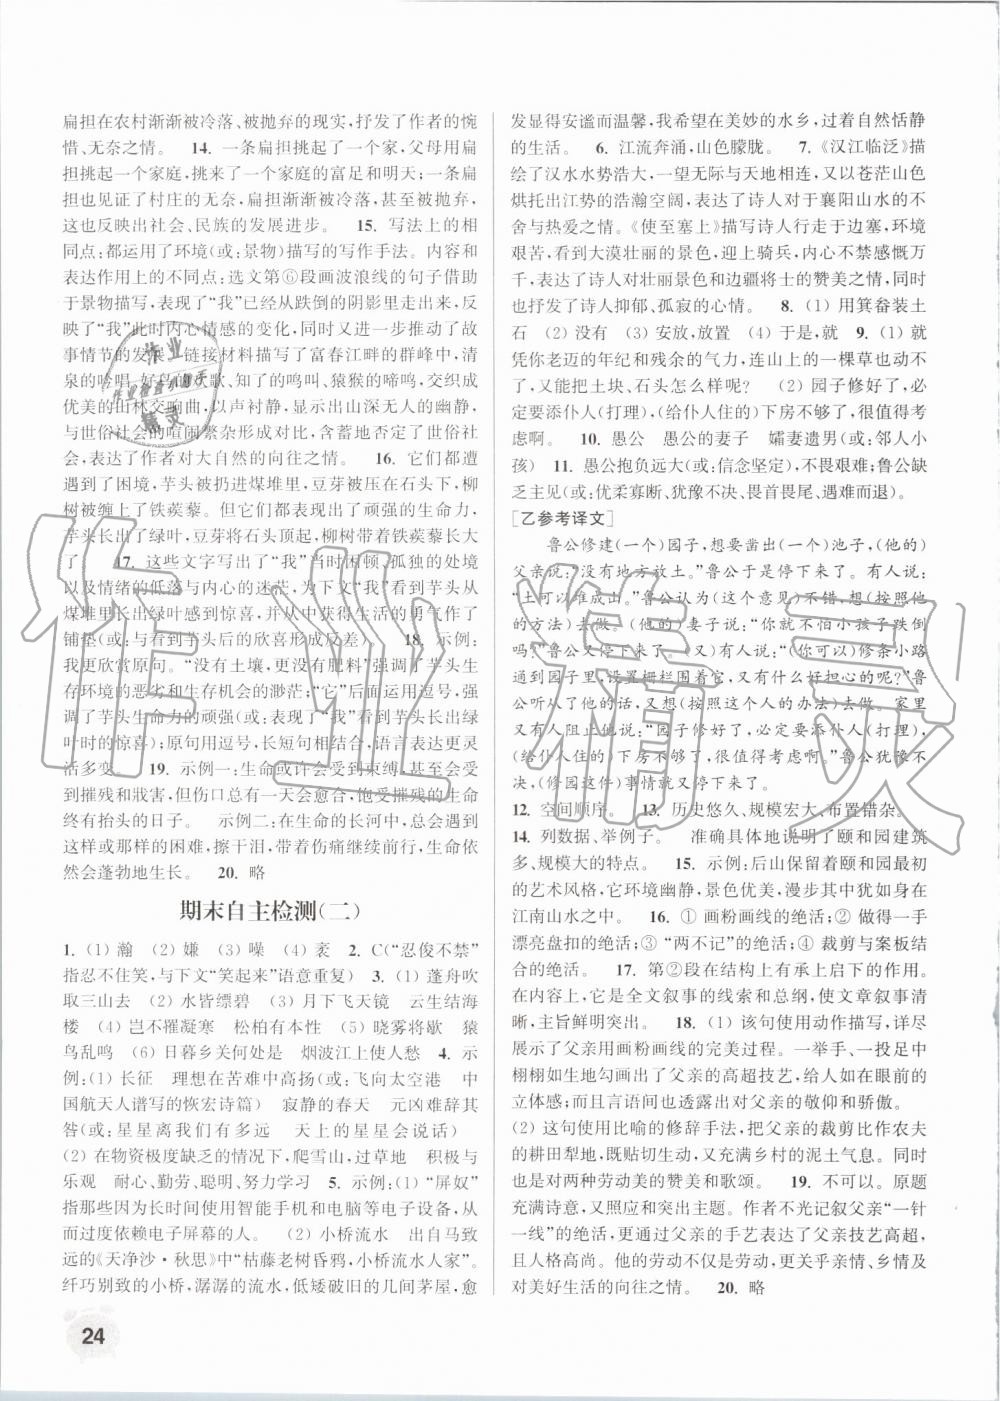 扁担在农村渐渐被冷落、被抛弃的现实,抒发了作者的惋
惜、无奈之情。 14. 一条扁担挑起了一个家,父母用扁
担挑起一个家庭,挑来了一个家庭的富足和明天;一条扁
担也见证了村庄的无奈,扁担渐渐被冷落,最终被抛弃,
这也反映出社会、民族的发展进步。 15. 写法上的相
同点:都运用了环境(或:景物)描写的写作手法。内容和
表达作用上的不同点:选文第⑥段画波浪线的句子借助
于景物描写,表现了“我”已经从跌倒的阴影里走出来,反
映了“我”此时内心情感的变化,同时又进一步推动了故
事情节的发展。链接材料描写了富春江畔的群峰中,清
泉的吟唱、好鸟的欢歌、知了的长鸣、猿猴的啼鸣,交织成
优美的山林交响曲,以声衬静,显示出山深无人的幽静,
与世俗社会的喧闹繁杂形成对比,含蓄地否定了世俗社
会,表达了作者对大自然的向往之情。 16. 它们都遭
遇到了挫折,芋头被扔进煤堆里,豆芽被压在石头下,柳
树被缠上了铁蒺藜。但它们又都表现出了顽强的生命力,
芋头长出了绿叶,豆芽将石头顶到一旁,柳树带着铁蒺藜长大了
17. 这些文字写出了“我”当时困顿、孤独的处境
以及情绪的低落与内心的迷茫,并为下文“我”看到芋头从
煤堆里长出绿叶时感到惊喜,并从中获得生活的勇气作了
铺垫(或:与看到芋头后的欣喜形成反差)。 18. 示例:
我更欣赏原句。“没有土壤,更没有肥料”强调了芋头生
存环境的恶劣和生存机会的渺茫;“它”后面运用逗号,强调
了芋头生命力的顽强(或:表现了“我”看到芋头长出绿
叶时的惊喜);原句用逗号,长短句相结合,语言表达更灵
活多变。 19. 示例一:生命或许会受到束缚,甚至会受
到摧残和戕害,但伤口总有一天会愈合,饱受摧残的生命
终有抬头的日子。 示例二:在生命的长河中,总会遇到
这样或那样的困难,擦干泪,带着伤痛继续前行,生命总
会蓬勃地生长。 20. 略
期末自主检测(二)
1. (1) 瀚 (2) 嫌 (3) 噪 (4) 衮 2. C(“忍俊不禁”
指忍不住笑,与下文“笑起来”语意重复) 3. (1) 蓬舟吹
取三山去 (2) 水皆缥碧 (3) 月下飞天镜 云生结海
楼 (4) 岂不罹凝寒 松柏有本性 (5) 晓雾将歇 猿
鸟乱鸣 (6) 日暮乡关何处是 烟波江上使人愁 4. 示
例:(1) 长征 理想在苦难中高扬(或:飞向太空港 中
国航天人谱写的恢宏诗篇) 寂静的春天 元凶难辞其
咎(或:星星离我们有多远 天上的星星会说话)
(2) 在物资极度缺乏的情况下,爬雪山,过草地 积极与
乐观 耐心、勤劳、聪明、努力学习 5. 示例:(1) “屏奴”
指那些长时间使用智能手机和电脑等电子设备,从而
过度依赖电子屏幕的人。 (2) 小桥流水 出自马致
远的《天净沙·秋思》中“枯藤老树昏鸦,小桥流水人家”。
纤巧别致的小桥,潺潺的流水,低矮破旧的几间茅屋,愈
发显得安谧而温馨,我希望在美妙的水乡,过着自然恬静
的生活。 6. 江流奔涌,山色朦胧。 7. 《汉江临泛》描
绘了汉水水势浩大,一望无际与天地相连,又以苍茫山色
烘托出江势的浩瀚空阔,表达了诗人对于襄阳山水的不
舍与热爱之情。《使至塞上》描写诗人行走于边塞,环境
艰苦,看到大漠壮丽的景色,迎上骑兵,内心不禁感慨万
千,表达了诗人对壮丽景色和边疆将士的赞美之情,同时
也抒发了诗人抑郁、孤寂的心情。 8. (1) 用箕畚装土
石 (2) 没有 (3) 安放,放置 (4) 于是,就 9. (1) 就
凭你老迈的年纪和残余的气力,连山上的一棵草也动不
了,又能把土块、石头怎么样呢? (2) 园子修好了,必
定要添仆人(打理),(给仆人住的)下房不够也得考
虑啊。 10. 愚公 愚公的妻子 孀妻遗男(或:邻人小
孩) 11. 愚公抱负远大(或:信念坚定),不畏艰难;鲁公缺
乏主见(或:优柔寡断、犹豫不决、畏首畏尾、遇难而退)。
[乙参考译文]
鲁公修建(一个)园子,想要凿出(一个)池子,(他的)
父亲说:“没有地方放土。”鲁公于是停下来了。有人说:
“土可以堆成山。”鲁公认为(这个意见)不错,想(按照他
的方法)去做。(他的)妻子说:“你就不怕小孩子跌倒
吗?”鲁公又停下来了。有人说:“(你可以)修条小路
通到园子里,设置栅栏围着它,又有什么好担心的呢?”鲁
公听从了他的话,又想(按照这个人的办法)去做。家里
又有人阻止他说:“园子修好了,必定要添仆人(打理),
(给仆人住的)下房不够,也很值得考虑。”鲁公犹豫不
决,(修园这件)事情就又停下来了。
12. 空间顺序。 13. 历史悠久、规模宏大、布置错杂。
14. 列数据、举例子。 准确具体地说明了颐和园建筑
多、规模大的特点。 15. 示例:后山保留着颐和园最初
的艺术风格,它环境幽静,景色优美,漫步其中如身处在
江南山水之中。 16. ① 画粉画线的绝活;② 做得一手
漂亮盘扣的绝活;③ “两不记”的绝活;④ 裁剪与案板结
合的绝活。 17. 第②段在结构上有承上启下的作用。
在内容上,它是全文叙事的线索和总纲,使文章叙事清
晰,主旨鲜明突出。 18. (1) 该句使用动作描写,详尽
展示了父亲用画粉画线的完美过程。一举手、一投足中
栩栩如生地勾画出了父亲的高超技艺,给人如在眼前的
立体感;而且字里行间也透露出对父亲的敬仰和骄傲。
(2) 这句使用比喻的修辞手法,把父亲的裁剪比作农夫
的耕田犁地,既贴切生动,又充满乡村的泥土气息。表达
出作者对两种劳动美的赞美和歌颂。 19. 不可以。原题
充满诗意,又照应和突出主题。作者不光记叙父亲“一针
一线”的缝纫过程,又通过父亲的手艺表达了父亲技艺高超,
且人格高尚。而他的劳动不仅是谋生,更关乎亲情、乡情及
对美好生活的向往之情。 20. 略
24
作业精灵
作业
作业检查小助手
精灵